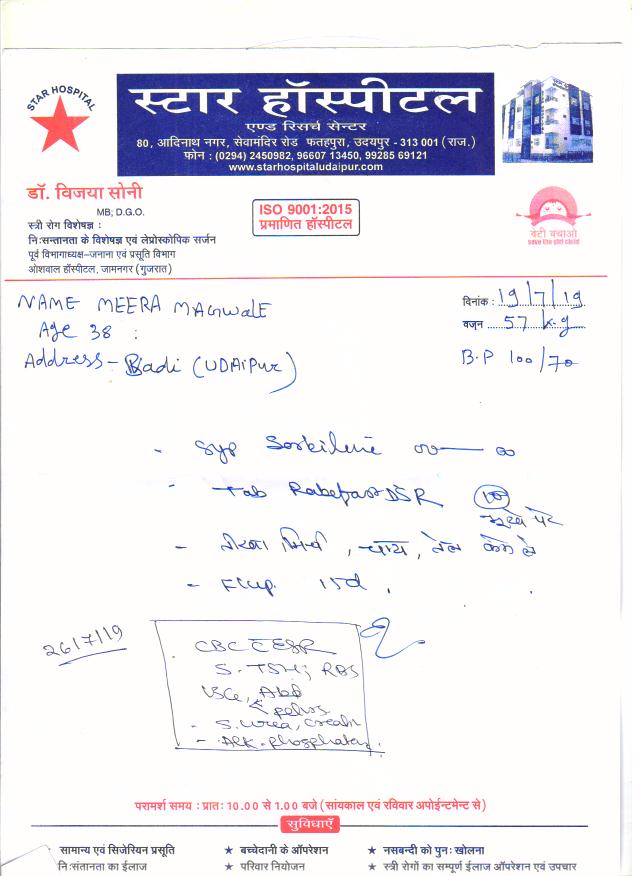 STAR HOSPITAL
स्टार हॉस्पीटल
एण्ड रिसर्च सेन्टर
80, आदिनाथ नगर, सेवामंदिर रोड फतहपुरा, उदयपुर - 313 001 (राज.)
फोन : (0294) 2450982, 96607 13450, 99285 69121
www.starhospitaludaipur.com
डॉ. विजया सोनी
MB; D.G.O.
स्त्री रोग विशेषज्ञ :
निःसन्तानता के विशेषज्ञ एवं लेप्रोस्कोपिक सर्जन
पूर्व विभागाध्यक्ष–जनाना एवं प्रसूति विभाग
ओशवाल हॉस्पीटल, जामनगर (गुजरात)
ISO 9001:2015
प्रमाणित हॉस्पीटल
बेटी बचाओ
save the girl child
NAME MEERA MAGWALE
Age 38 :
Address - Badi (UDAIPUR)
दिनांक : 19/7/19
वजन 57 kg
B.P 100/70
- Syp
- Tab Rabefast DSR 10
भूखे पेट
- मिर्ची, चाय, तेल कम ले
- F/up 15d.
26/7/19
CBC ESR
S. TSH; RBS
USG, Abd
pelvis
- S. urea, creatn
- Alk. phosphatas
परामर्श समय : प्रातः 10.00 से 1.00 बजे (सांयकाल एवं रविवार अपोईन्टमेन्ट से)
सुविधाएँ
सामान्य एवं सिजेरियन प्रसूति ★ बच्चेदानी के ऑपरेशन ★ नसबन्दी को पुनः खोलना
निःसंतानता का ईलाज ★ परिवार नियोजन ★ स्त्री रोगों का सम्पूर्ण ईलाज ऑपरेशन एवं उपचार